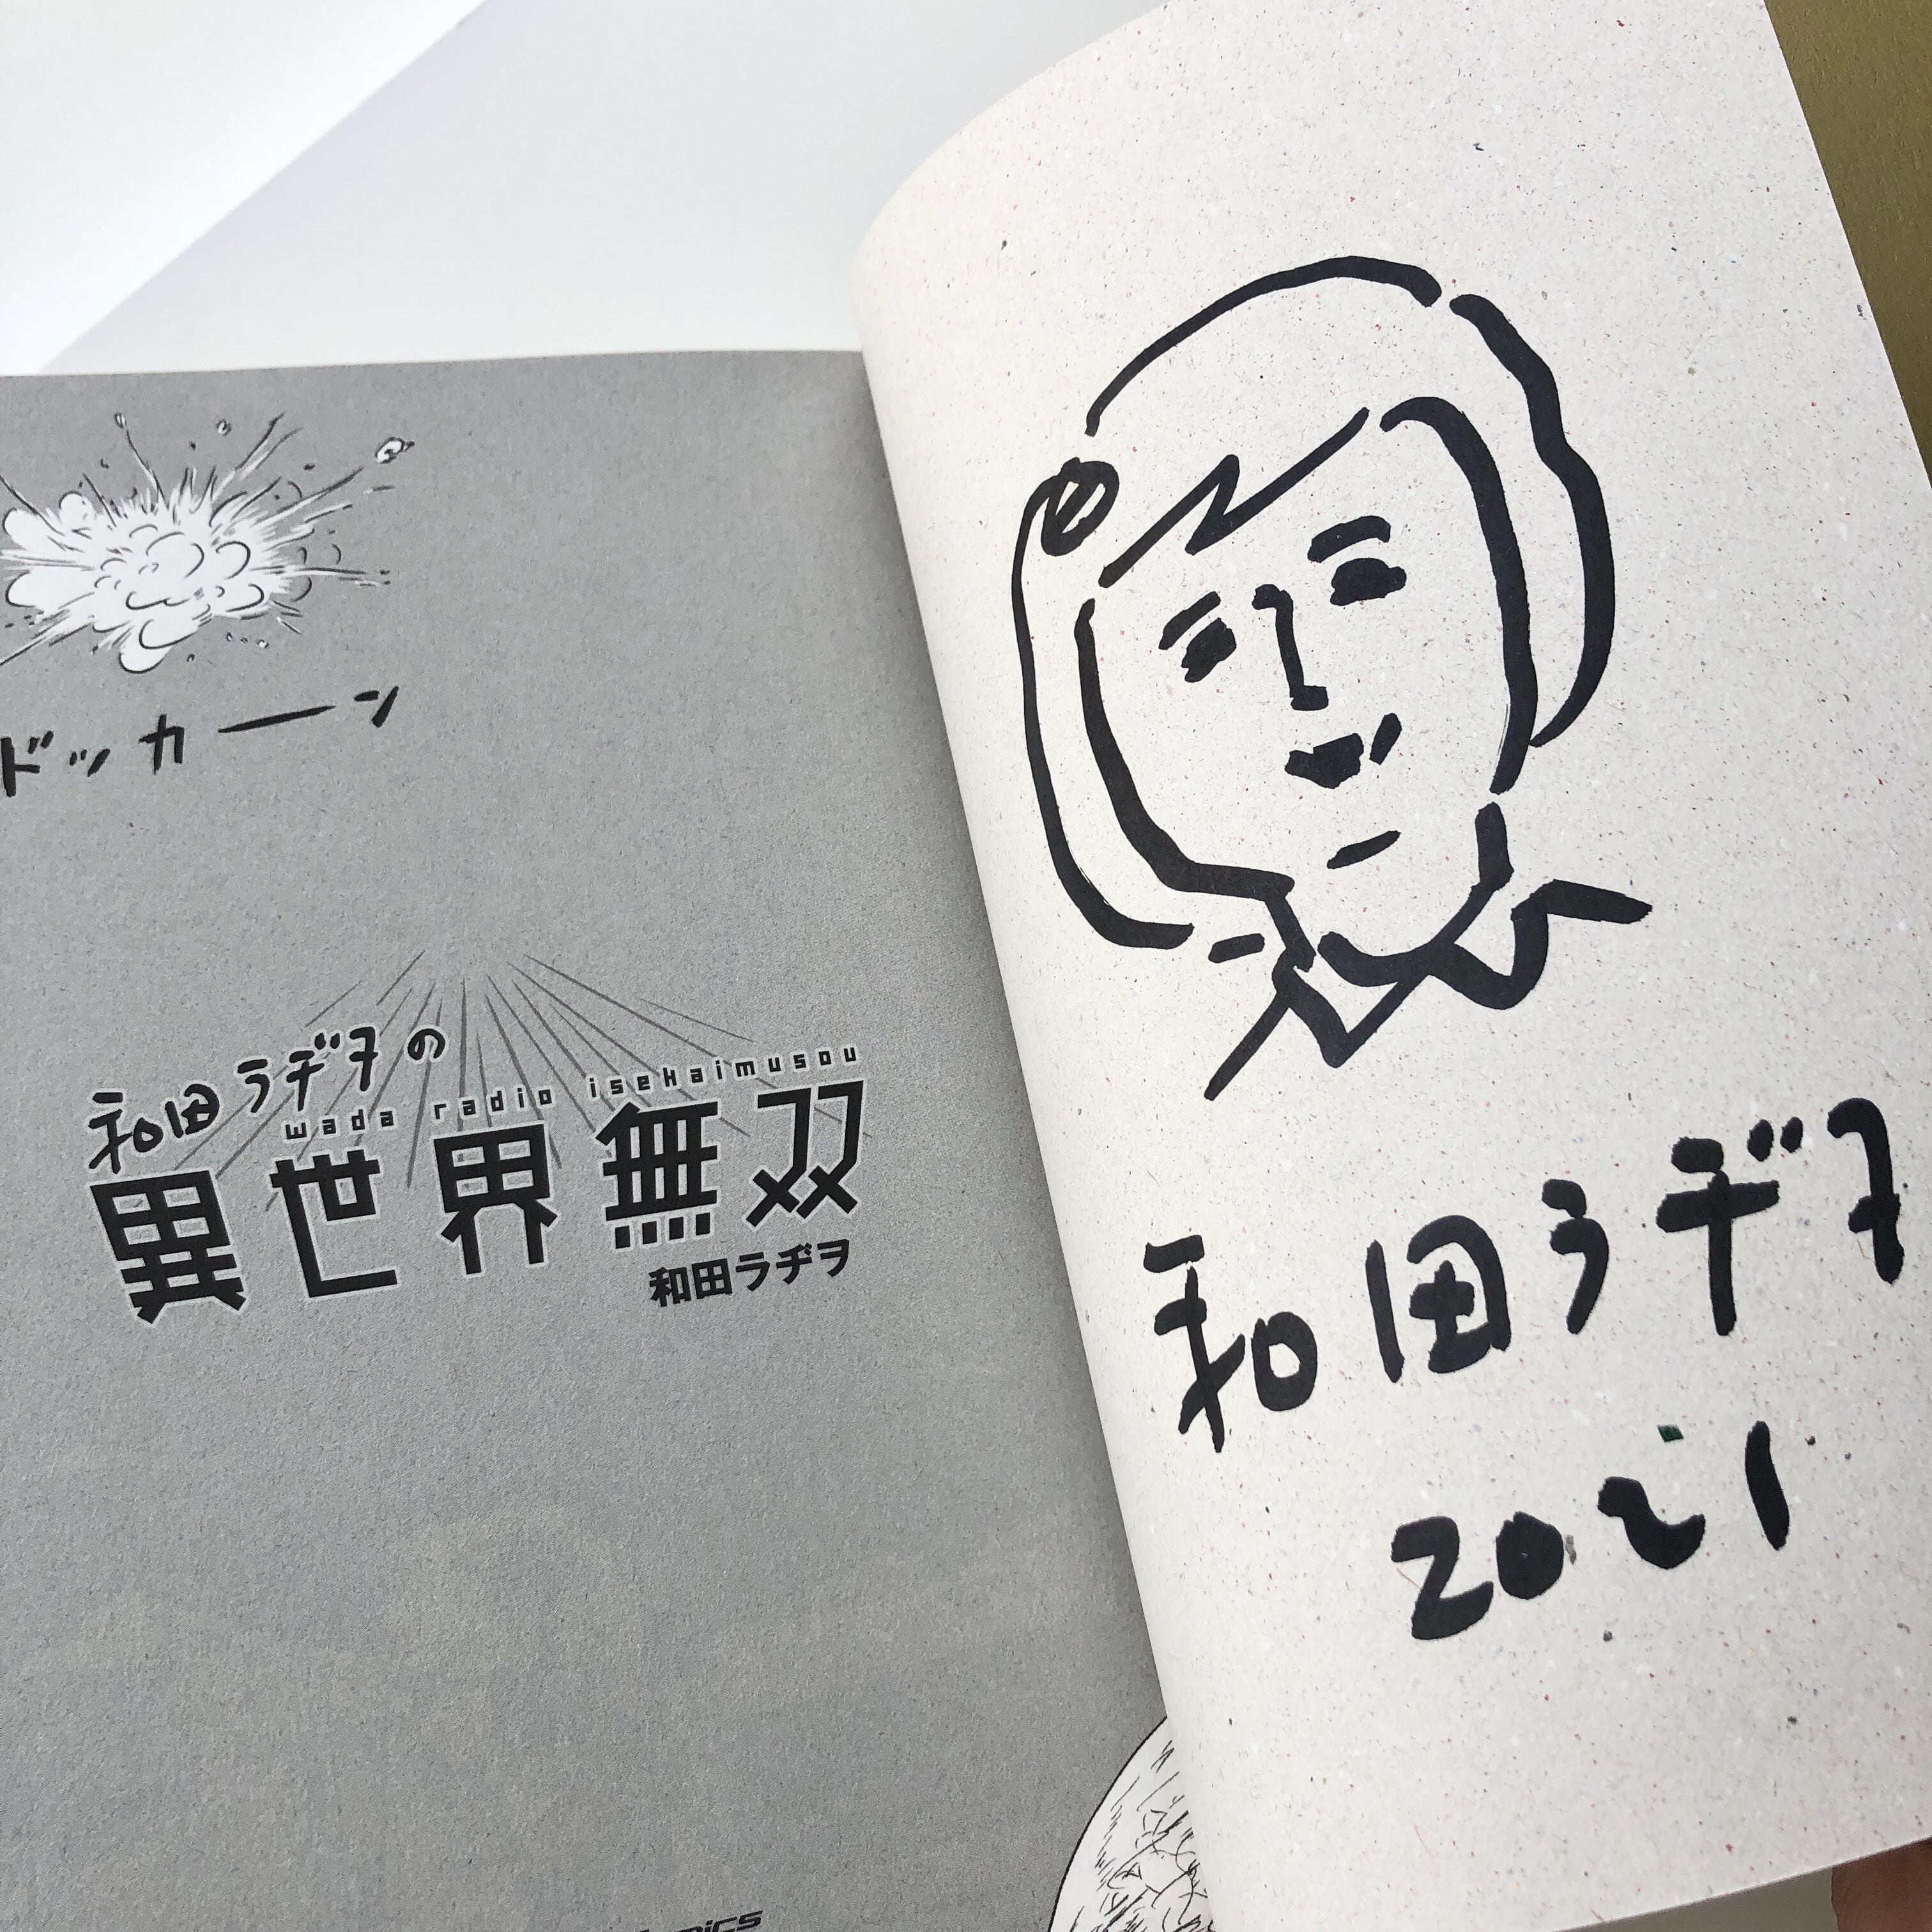 ドッカーン
和田ラヂヲの
wada radio isekaimusou
異世界無双
和田ラヂヲ
和田ラヂヲ
2021